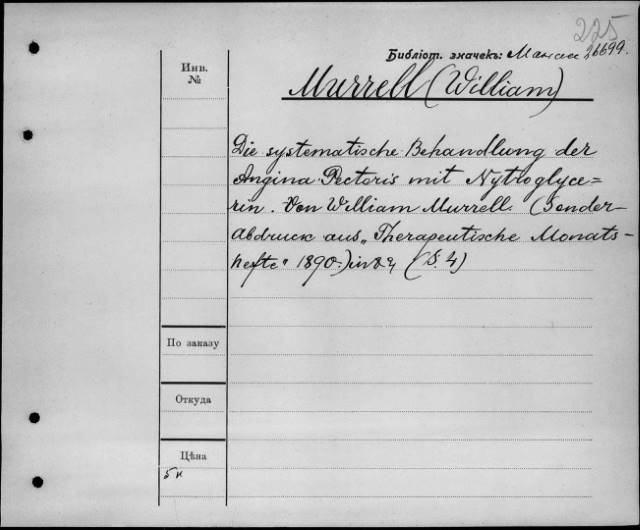 225
Библіот. значекъ: 26699.
Инв.
№
Murrell (William)
Die systematische Behandlung der
Angina Pectoris mit Nytroglyce=
rin. Von William Murrell. (Sonder-
abdruck aus „Therapeutische Monats-
hefte“ 1890.) in 8º (S. 4)
По заказу
Откуда
Цѣна
5 к